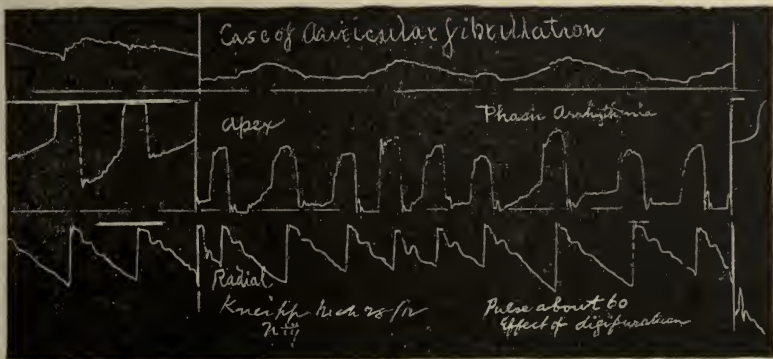 Case of Auricular fibrillation
Apex
Phasic Arrhythmia
Radial
Pulse about 60
Effect of digipuratum